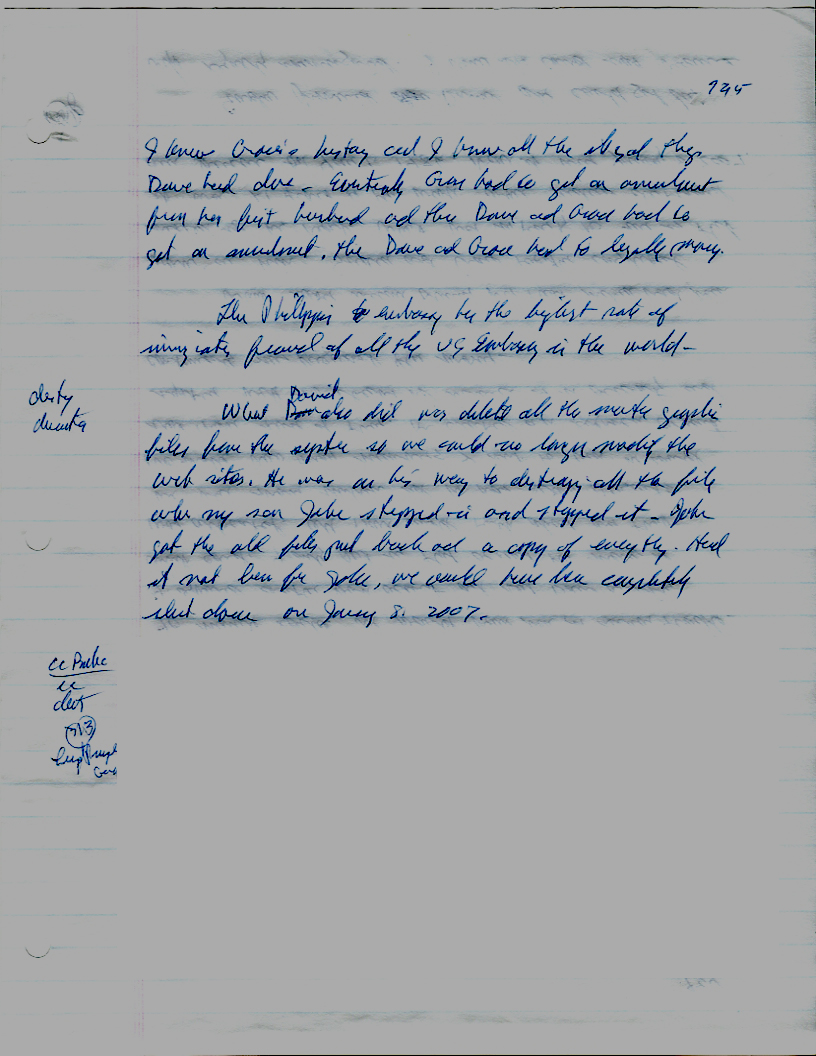 I knew Grace's history and I knew all the illegal things
Dave had done - Eventually Grace had to get an annulment
from her first husband and then Dave and Grace had to
get an annulment, the Dave and Grace had to legally marry.
The Philippin embassy has the highest rate of
immigration of all the US Embassy in the world -
What David also did was delete all the master graphic
files from the system so we could no longer modify the
web sites. He was on his way to destroying all the file
when my son John stepped-in and stopped it - John
got the old files put back and a copy of everything. Had
it not been for John, we would have been completely
shut down on January 8. 2007.
cc
313